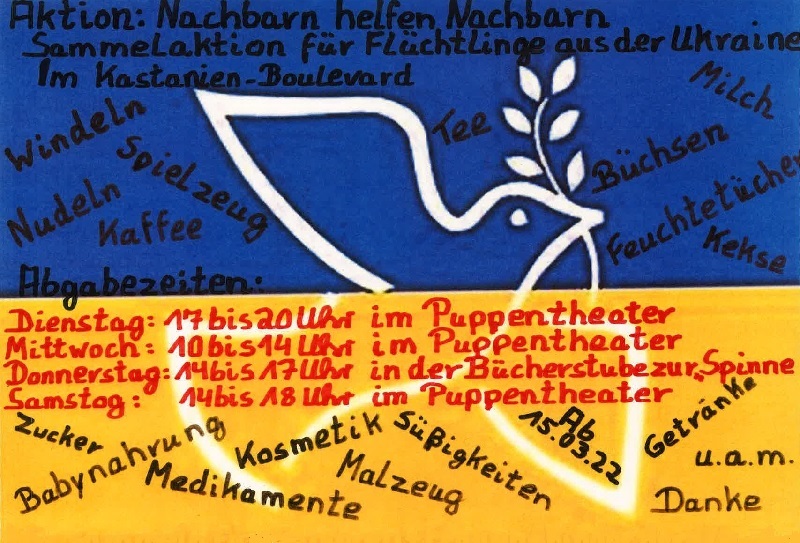 Aktion: Nachbarn helfen Nachbarn
Sammelaktion für Flüchtlinge aus der Ukraine
Im Kastanien-Boulevard
Windeln
Spielzeug
Tee
Milch
Büchsen
Nudeln
Kaffee
Feuchtetücher
Kekse
Abgabezeiten:
Dienstag: 17 bis 20 Uhr im Puppentheater
Mittwoch: 10 bis 14 Uhr im Puppentheater
Donnerstag: 14 bis 17 Uhr in der Bücherstube zur „Spinne
Samstag: 14 bis 18 Uhr im Puppentheater
Zucker
Babynahrung
Medikamente
Kosmetik
Malzeug
Süßigkeiten
Ab
15.03.22
Getränke
u.a.m.
Danke